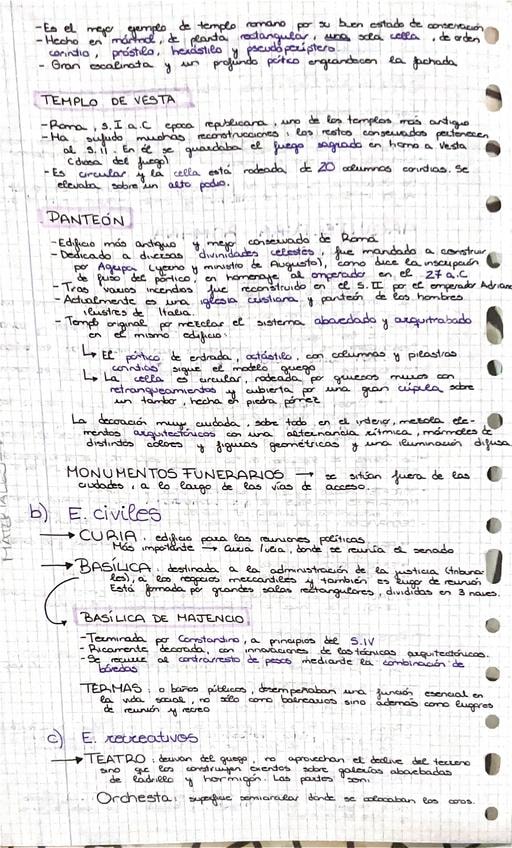 -Es el mejor ejemplo de templo romano por su buen estado de conservación
-Hecho en mármol, de planta rectangular, una sola cella, de orden
corintio, próstilo, hexástilo y pseudoperíptero.
- Gran escalinata y un profundo pórtico engrandecen la fachada
TEMPLO DE VESTA
-Roma, S.I a.C época republicana, uno de los templos más antiguo
-Ha sufrido muchas reconstrucciones, los restos conservados pertenecen
al S.II. En él se guardaba el fuego sagrado en honor a Vesta
(diosa del fuego)
-Es circular y la cella está rodeada de 20 columnas corintias. Se
elevaba sobre un alto podio.
PANTEÓN
-Edificio más antiguo y mejor conservado de Roma
-Dedicado a diversas divinidades celestes, fue mandado a construir
por Agripa (yerno y ministro de Augusto), como dice la inscripción
de friso del pórtico, en homenaje al emperador en el 27 a.C
-Tras varios incendios fue reconstruido en el S.II por el emperador Adriano
-Actualmente es una iglesia cristiana y panteón de los hombres
ilustres de Italia.
-Templo original por mezclar el sistema abovedado y arquitrabado
en el mismo edificio:
↳ El pórtico de entrada, octástilo, con columnas y pilastras
corintias sigue el modelo griego
↳ La cella es circular, rodeada por gruesos muros con
retranqueamientos y cubierta por una gran cúpula sobre
un tambor, hecha en piedra pómez
La decoración muy cuidada, sobre todo en el interior, mezcla ele-
mentos arquitectónicos con una alternancia rítmica, mármoles de
distintos colores y figuras geométricas y una iluminación difusa
MONUMENTOS FUNERARIOS → se sitúan fuera de las
ciudades, a lo largo de las vías de acceso.
b) E. civiles
→ CURIA: edificio para las reuniones políticas
Más importante → Curia Iulia, donde se reunía el senado
→ BASÍLICA: destinada a la administración de la justicia (tribuna
les), a los negocios mercantiles y también es lugar de reunión
Está formada por grandes salas rectangulares, divididas en 3 naves.
BASÍLICA DE MAJENCIO
-Terminada por Constantino, a principios del S.IV
-Ricamente decorada, con innovaciones de las técnicas arquitectónicas.
-Se recurre al contrarresto de pesos mediante la combinación de
bóvedas
TERMAS: o baños públicos, desempeñaban una función esencial en
la vida social, no sólo como balnearios sino además como lugares
de reunión y recreo
c) E. recreativos
→ TEATRO: derivan del griego, no aprovechan el declive del terreno
sino que los construyen exentos sobre galerías abovedadas
de ladrillo y hormigón. Las partes son:
Orchesta: superficie semicircular donde se colocaban los coros.